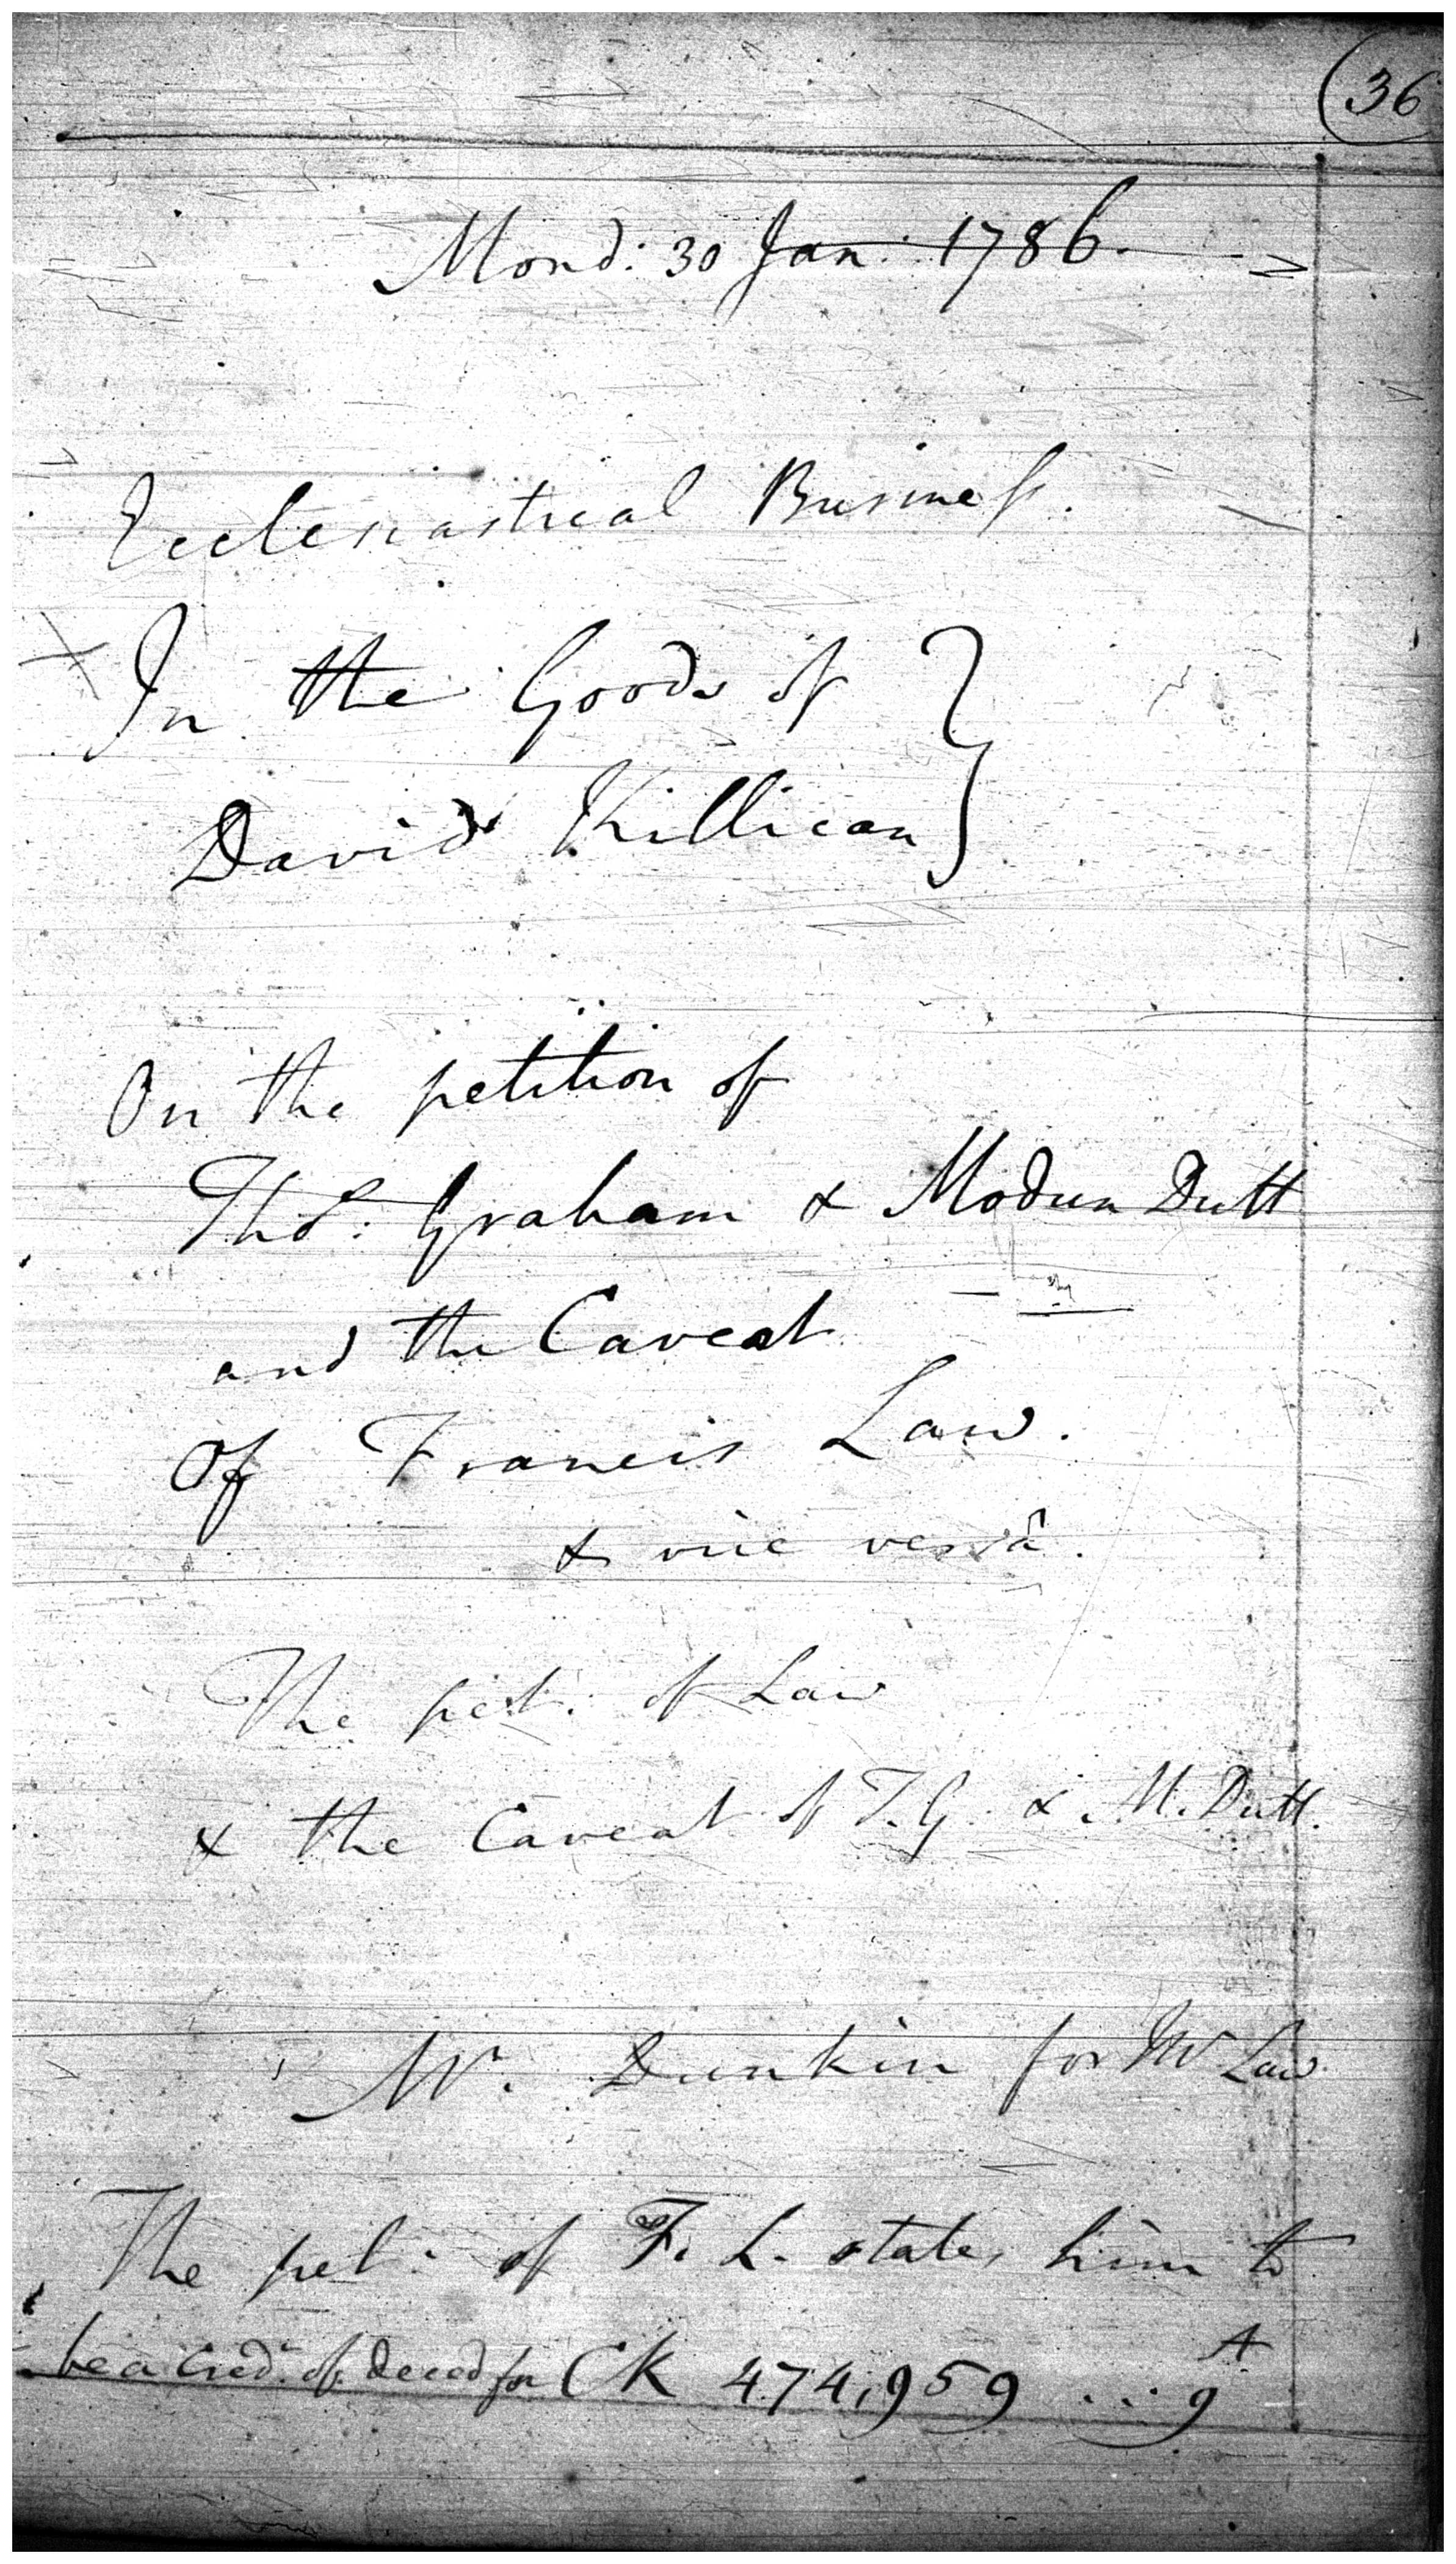 (36
Mond: 30 Jan: 1786.
Ecclesiastical Business.
In the Goods of
David Killican
On the petition of
Thos: Graham & Modun Dutt
and the Caveat
Of Francis Law.
& vice versâ.
The pet: of Law
& the Caveat of T.G. & M. Dutt.
Mr. Dunkin for Mr Law
The pet: of F. L. states him to
be a Cred: of deced for CK 474,959 ... 9
A